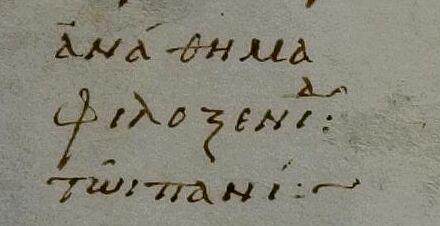 ἀνάθημα
φιλοξενίδ:
τῶι πανί:~